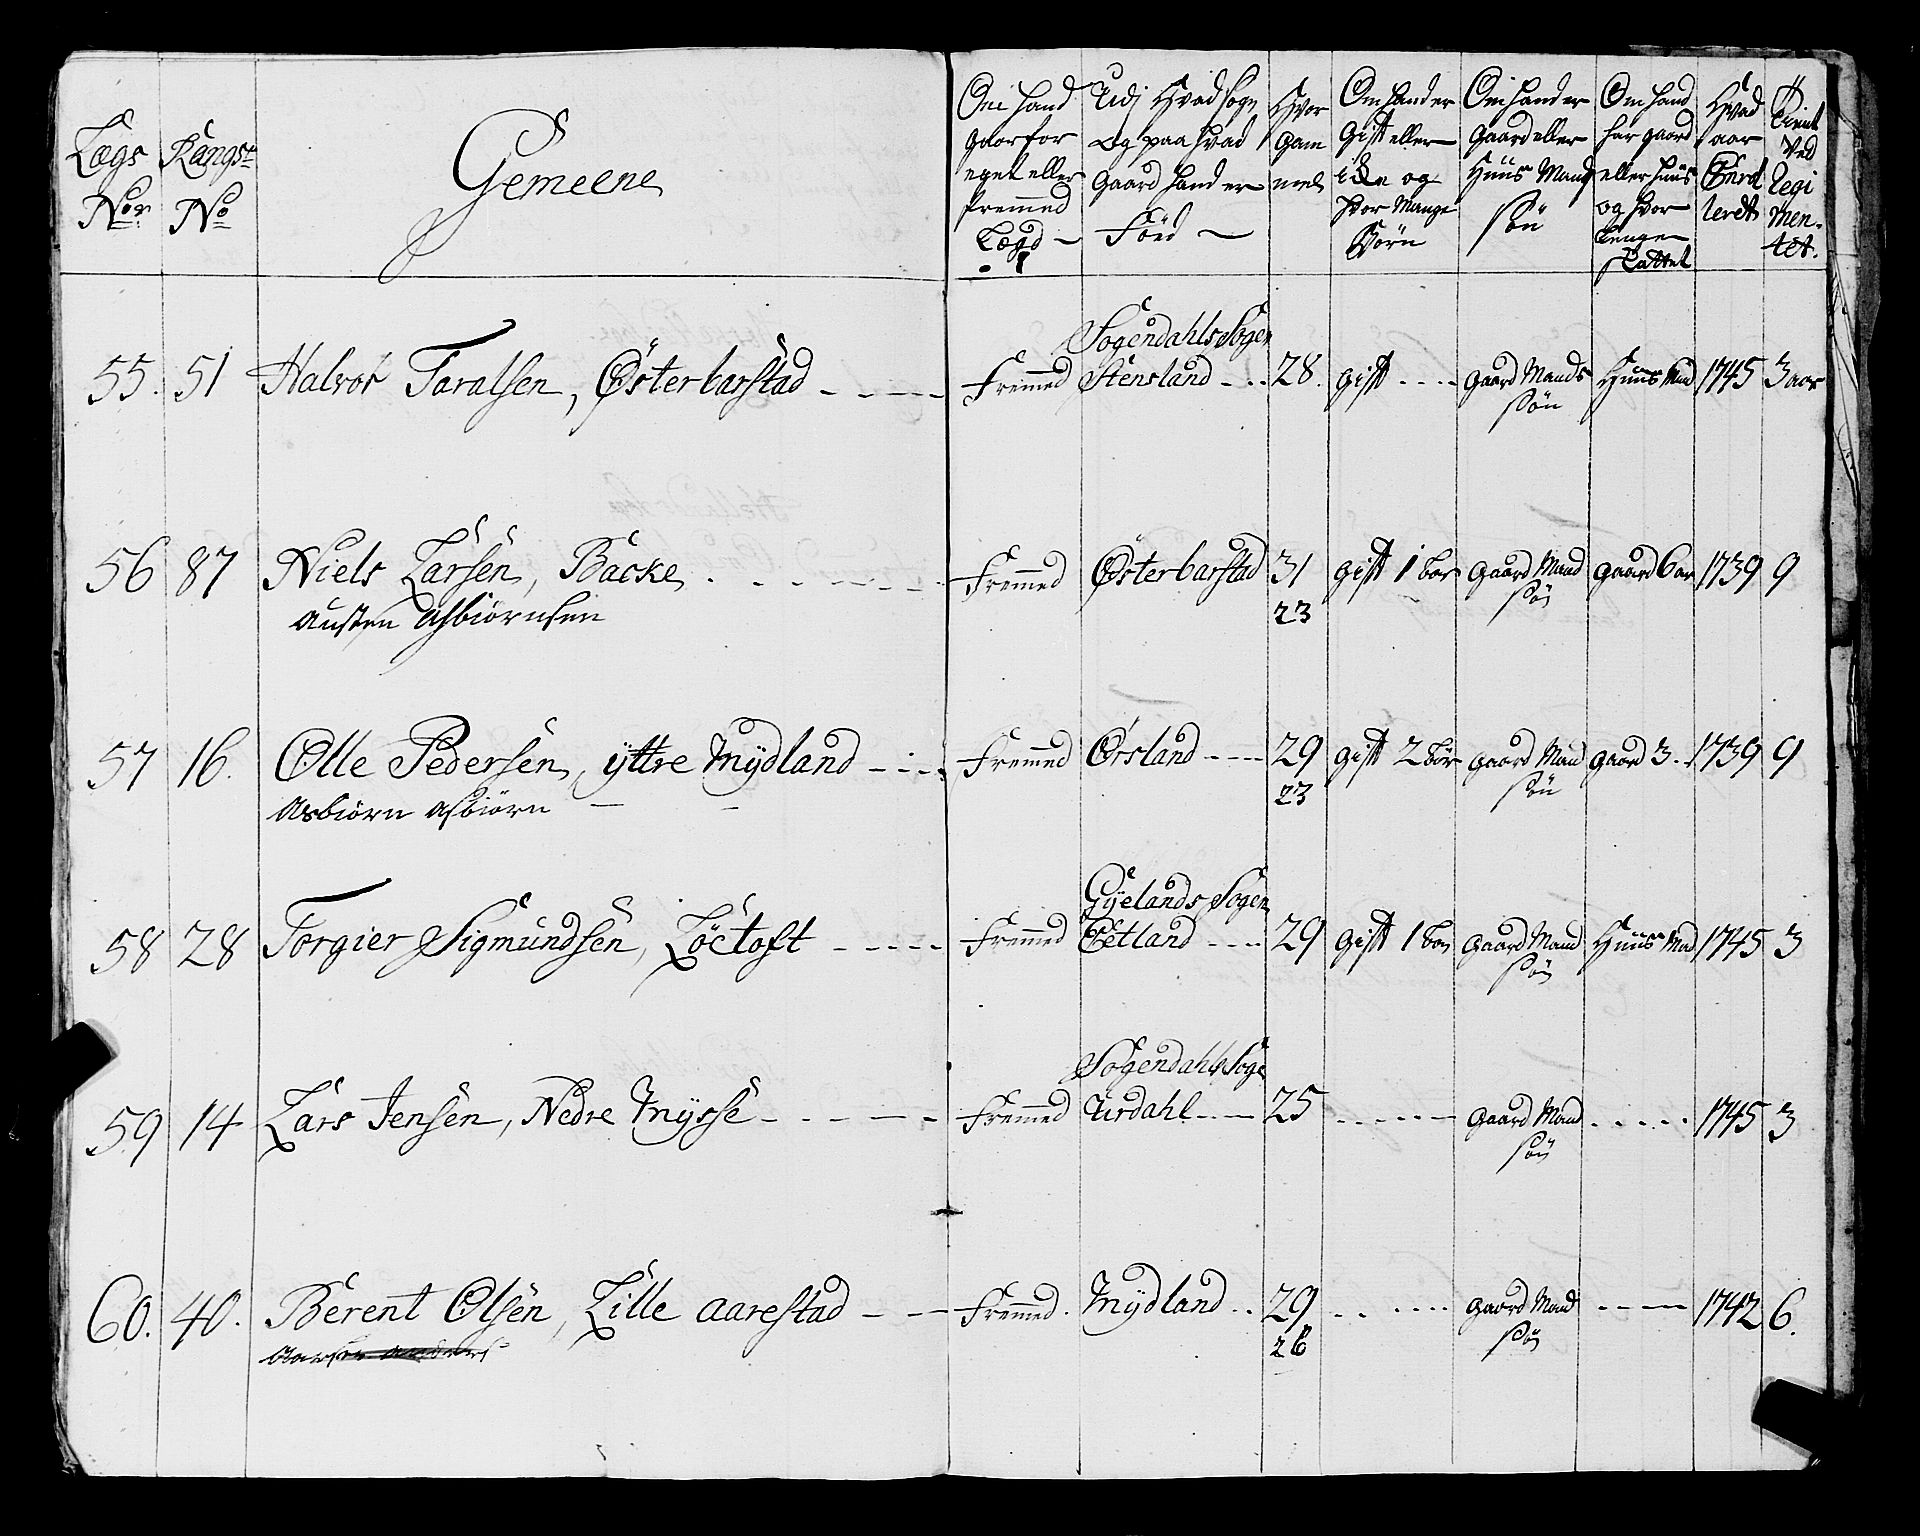 Lægs No
Rangs No
Gemeene
Om hand gaar for eget eller fremmed Lægd
Udj hvad Sogn og paa hvad gaard hand er Föed
Hvor gam mel
Om hand er gift eller icke og hvor mange Börn
Om hand er gaard eller Huus Mands Sön
Om hand har gaard eller Huus og hvor lenge skattet
Hvad aar Enrol lerdt
Tient ved Regi men- tet.
Sogendahls Sogen
55. 51 Halvor Taralsen, Østerbarstad Fremmed Stensland 28. gift gaard Mands Huus Mand 1745 3 aar
Sön
56 87 Niels Larsen, Backe Fremmed Østerbarstad 31 gift 1 bar gaard Mand gaard 6 ar 1739 9
Austen Asbiörnsen 23 Sön
57 16. Olle Pedersen, yttre Mydland Fremmed Örsland 29 gift 2 bör gaard Mand gaard 3. 1739 9
Asbiörn Asbiörn 23 Sön
Gyelands Sogen
58 28 Torgier Sigmundsen, Löctoft Fremmed Eetland 29 gift 1 bar gaard Mand Huus Mad 1745 3
Sön
Sogendahls Soge
59 14 Lars Jensen, Nedre Mysse Fremmed Urdahl 25 gaard Mand 1745 3
Sön
60. 40. Berent Olsen, Lille aarestad Fremmed. Mydland 29 gaard Mand 1742 6.
26 Sön